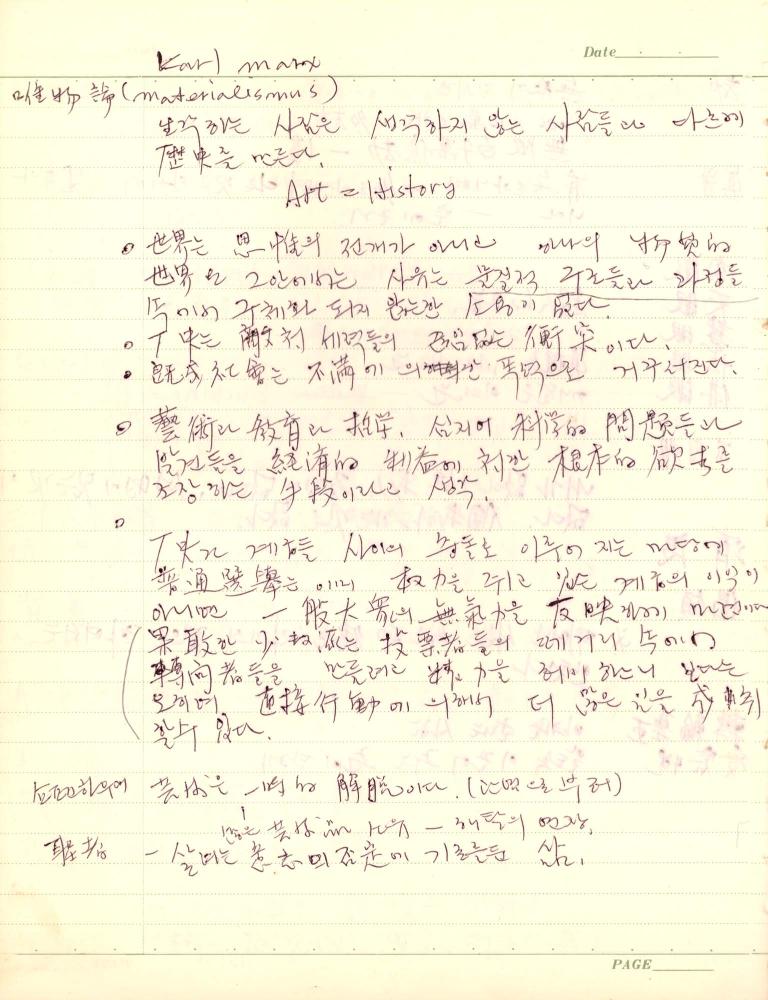 Date
Karl marx
唯物論(materialismus)
생각하는 사람은 생각하지 않는 사람들과 다르게
歷史를 만든다.
Art = History
世界는 思惟의 전개가 아니고 하나의 物質的
世界요 그안에서는 사유는 물질적 구조들과 과정들
속에서 구체화 되지 않는한 소용이 없다.
丁史는 敵対 세력들의 끊임없는 衝突이다.
既成社會는 不満에 의한 폭력으로 거꾸러진다.
藝術과 敎育과 哲学, 심지어 科学的 問題들과
발견들을 経済的 制益에 対한 根本的 欲求를
조장하는 手段이라고 생각.
丁史가 계층들 사이의 충돌로 이루어 지는 마당에
普通選擧는 이미 权力을 쥐고 있는 계층의 이익이
아니면 一般大衆의 無氣力을 反映하게 마련이다
果敢한 少数派는 投票者들의 떼거리 속에서
轉向者들을 만들려고 精力을 허비하느니 보다는
오히려 直接行動에 의해서 더 많은 일을 成就
할수 있다.
쇼펜하우어 芸術은 一時的 解脫이다. (고면으로 부터)
많은 芸術品 소유 - 해탈의 연장.
聖者 - 살려는 意志의 否定에 기초를둔 삶.
PAGE